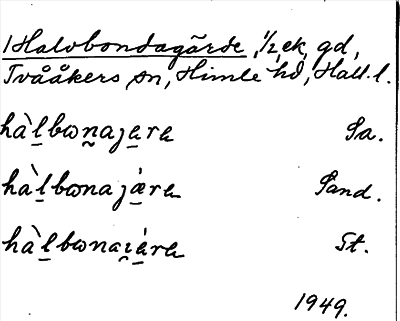 Halvbondagärde, 1/2, ek, gd,
Tvååkers sn, Himle hd, Hall. l.
hàl̠bɷn̰aja̠ra Sa.
hàl̠bɷnajá̠ra Sand.
hàl̠bɷnai̯á̠ra St.
1949.